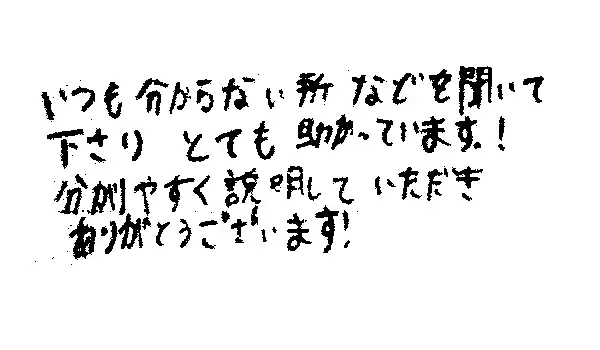 いつも分からない所などを聞いて
下さり とても 助かっています。!
分かりやすく説明して いただき
ありがとうございます!